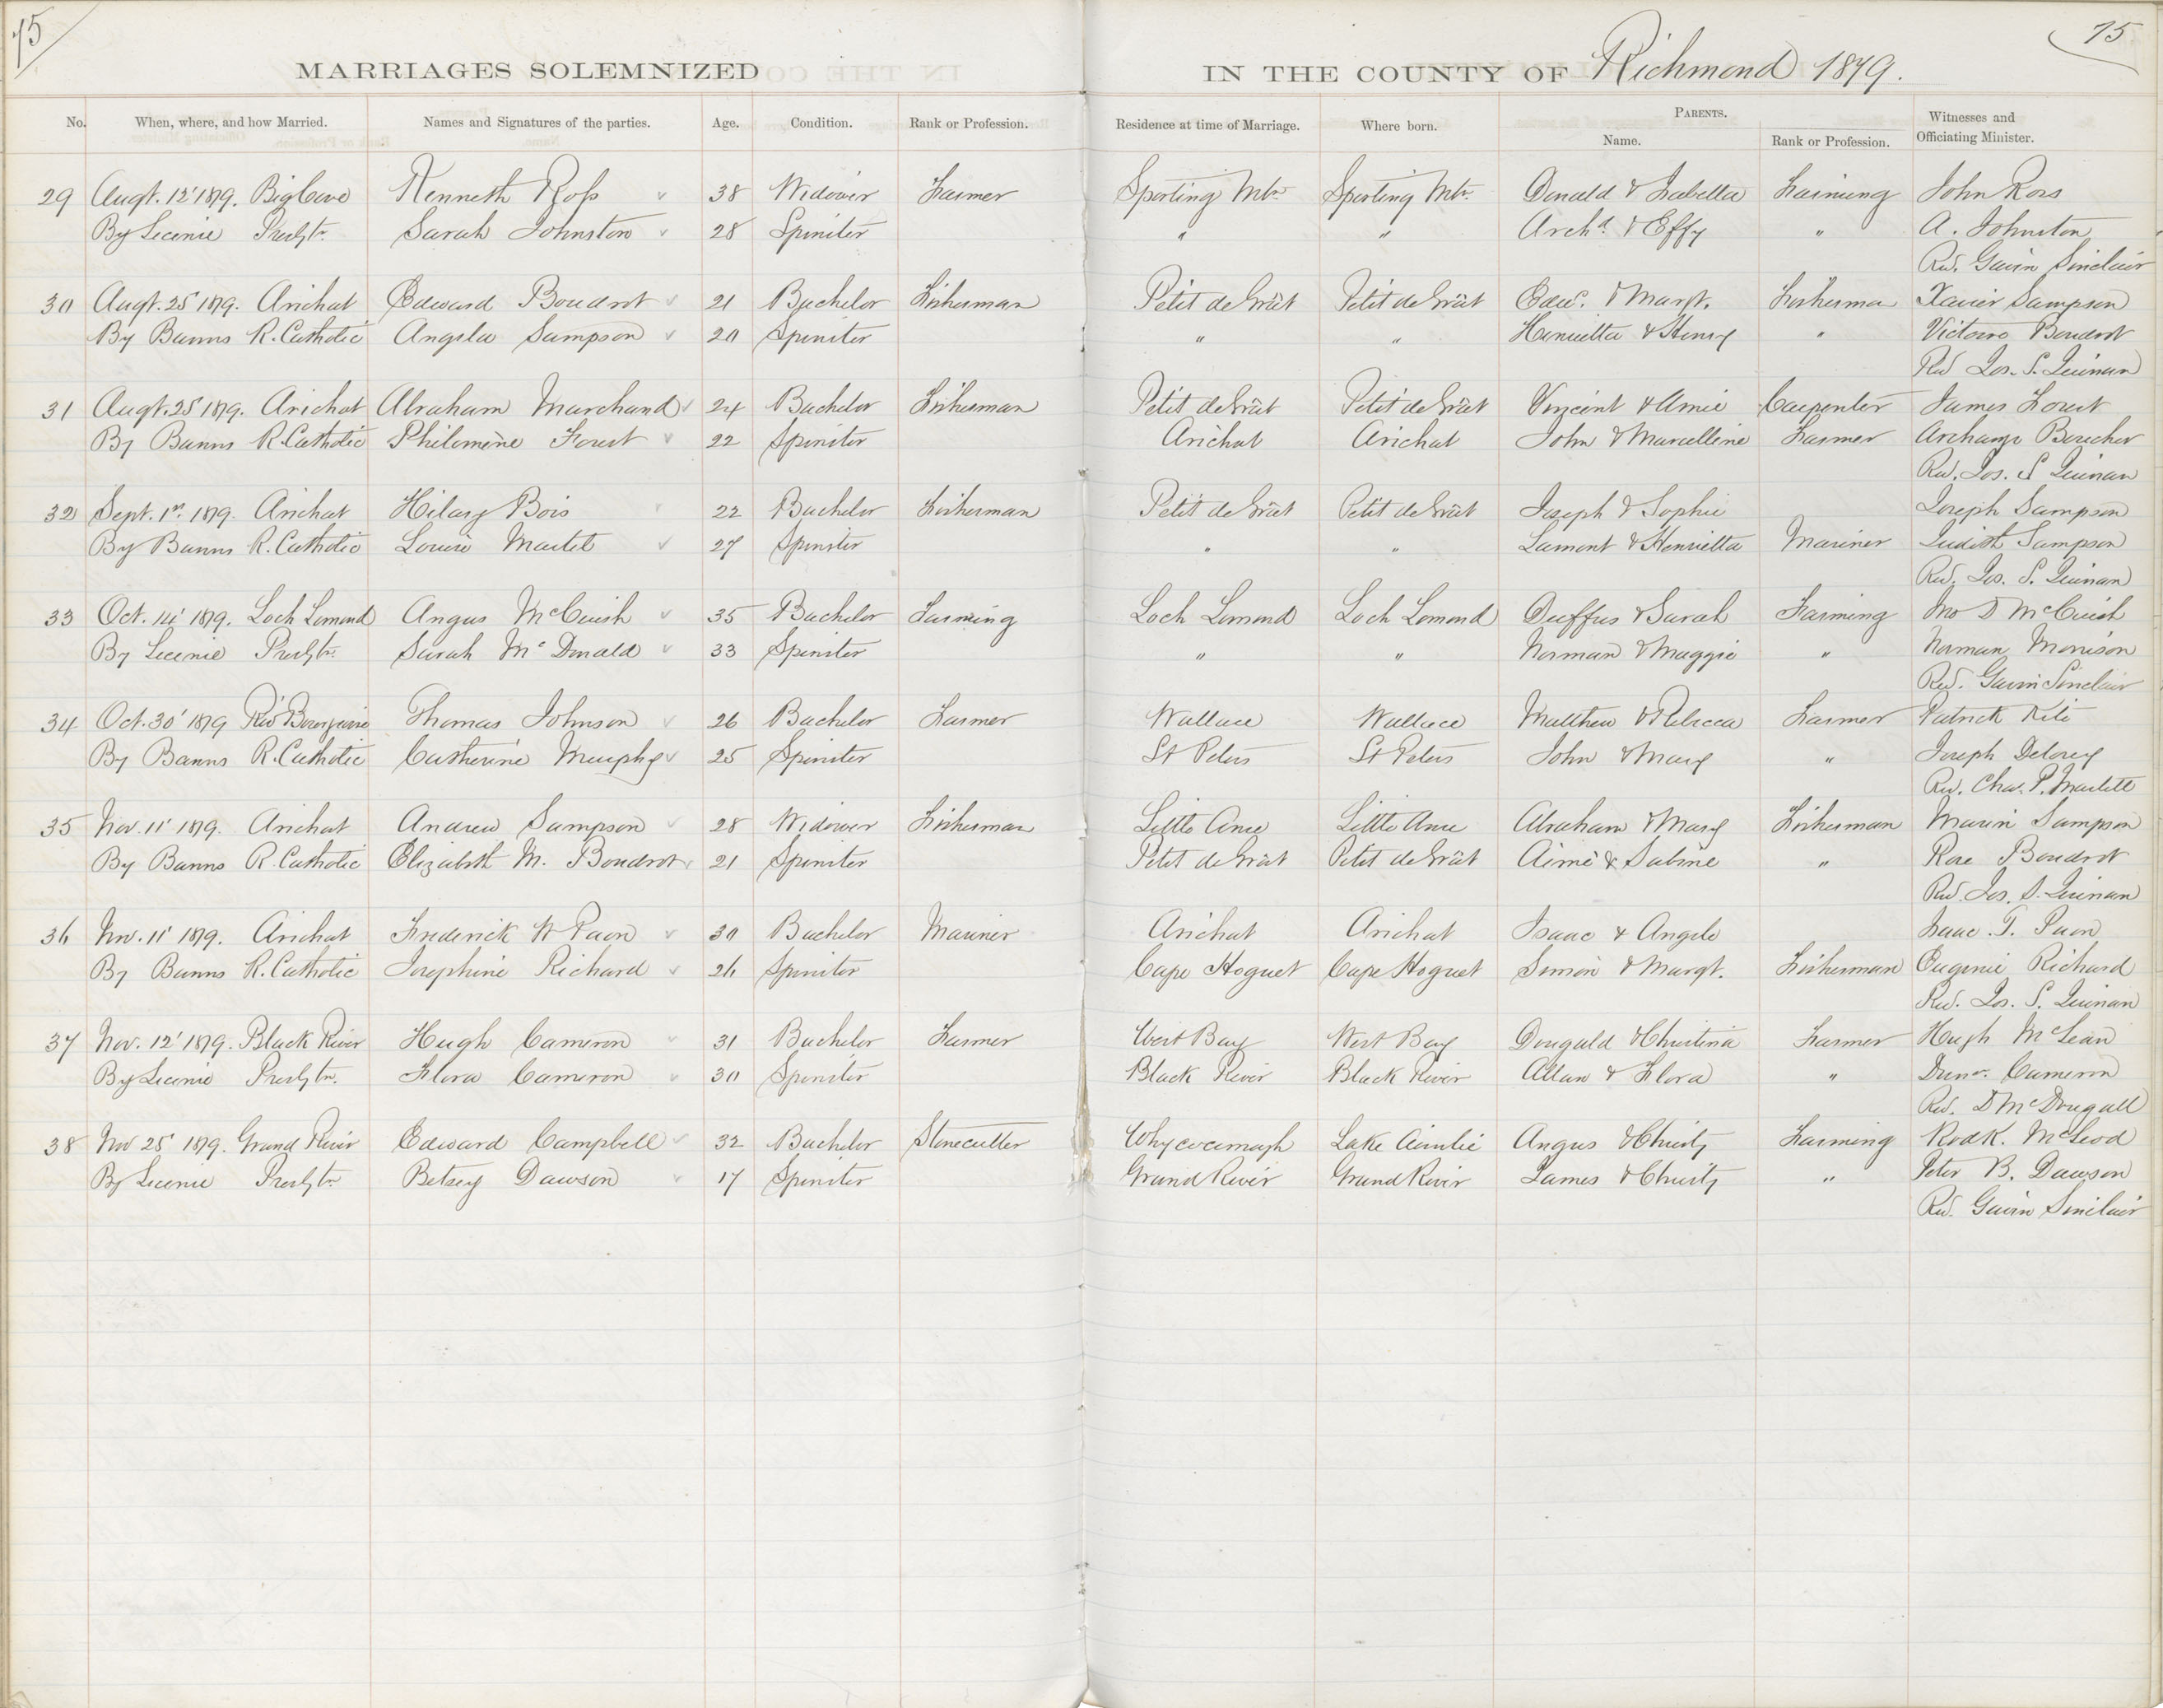 75 75
MARRIAGES SOLEMNIZED IN THE COUNTY OF Richmond 1879.
No. When, where, and how Married. Names and Signatures of the parties. Age. Condition. Rank or Profession. Residence at time of Marriage. Where born. PARENTS. Witnesses and
Name. Rank or Profession. Officiating Minister.
29 Augt. 12' 1879. Big Cove Kenneth Ross 38 Widower Farmer Sporting Mtn Sporting Mtn. Donald & Isabella Farming John Ross
By License Presbtn. Sarah Johnston 28 Spinster " " Archd. & Effy " A. Johnston
Rev. Gavin Sinclair
30 Augt. 25' 1879. Arichat Edward Boudrot 21 Bachelor Fisherman Petit de Grât Petit de Grât Edwd. & Margt. Fisherma Xavier Sampson
By Banns R. Catholic Angela Sampson 20 Spinster " " Henrietta & Henry " Victoire Boudrot
Rev Jos. S. Quinan
31 Augt. 25' 1879. Arichat Abraham Marchand 24 Bachelor Fisherman Petit de Grât Petit de Grât Vincent & Amie Carpenter James Forest
By Banns R. Catholic Philomène Forest 22 Spinster Arichat Arichat John & Marcelline Farmer Archange Boucher
Rev. Jos. S Quinan
32 Sept. 1st. 1879. Arichat Hilary Bois 22 Bachelor Fisherman Petit de Grât Petit de Grât Joseph & Sophie Joseph Sampson
By Banns R. Catholic Louise Martel 27 Spinster " " Lamont & Henrietta Mariner Judith Sampson
Rev. Jos. S. Quinan
33 Oct. 14' 1879. Loch Lomond Angus McCuish 35 Bachelor Farming Loch Lomond Loch Lomond Duffus & Sarah Farming Jno D McCuish
By License Presbtn. Sarah McDonald 33 Spinster " " Norman & Maggie " Norman Morrison
Rev. Gavin Sinclair
34 Oct. 30' 1879 Riv Bourgeois Thomas Johnson 26 Bachelor Farmer Wallace Wallace Matthew & Rebecca Farmer Patrick Kite
By Banns R. Catholic Catherine Murphy 25 Spinster St Peters St Peters John & Mary " Joseph Delorey
Rev. Chas. P. Martell
35 Nov. 11' 1879. Arichat Andrew Sampson 28 Widower Fisherman Little Anse Little Anse Abraham & Mary Fisherman Marin Sampson
By Banns R. Catholic Elizabeth M. Boudrot 21 Spinster Petit de Grât Petit de Grât Aimé & Sabine " Rose Boudrot
Rev. Jos. S. Quinan
36 Nov. 11' 1879. Arichat Frederick W Paon 30 Bachelor Mariner Arichat Arichat Isaac & Angele Isaac T. Paon
By Banns R. Catholic Josephine Richard 26 Spinster Cape Hoguet Cape Hoguet Simon & Margt. Fisherman Eugenie Richard
Rev. Jos. S. Quinan
37 Nov. 12' 1879. Black River Hugh Cameron 31 Bachelor Farmer West Bay West Bay Dougald & Christina Farmer Hugh McLean
By License Presbtn. Flora Cameron 30 Spinster Black River Black River Allan & Flora " Cameron
Rev. D McDougall
38 Nov 25' 1879. Grand River Edward Campbell 32 Bachelor Stonecutter Whycocomagh Lake Ainslie Angus & Christy Farming Rodk. McLeod
By License Presbtn Betsey Dawson 17 Spinster Grand River Grand River James & Christy " Peter B. Dawson
Rev. Gavin Sinclair